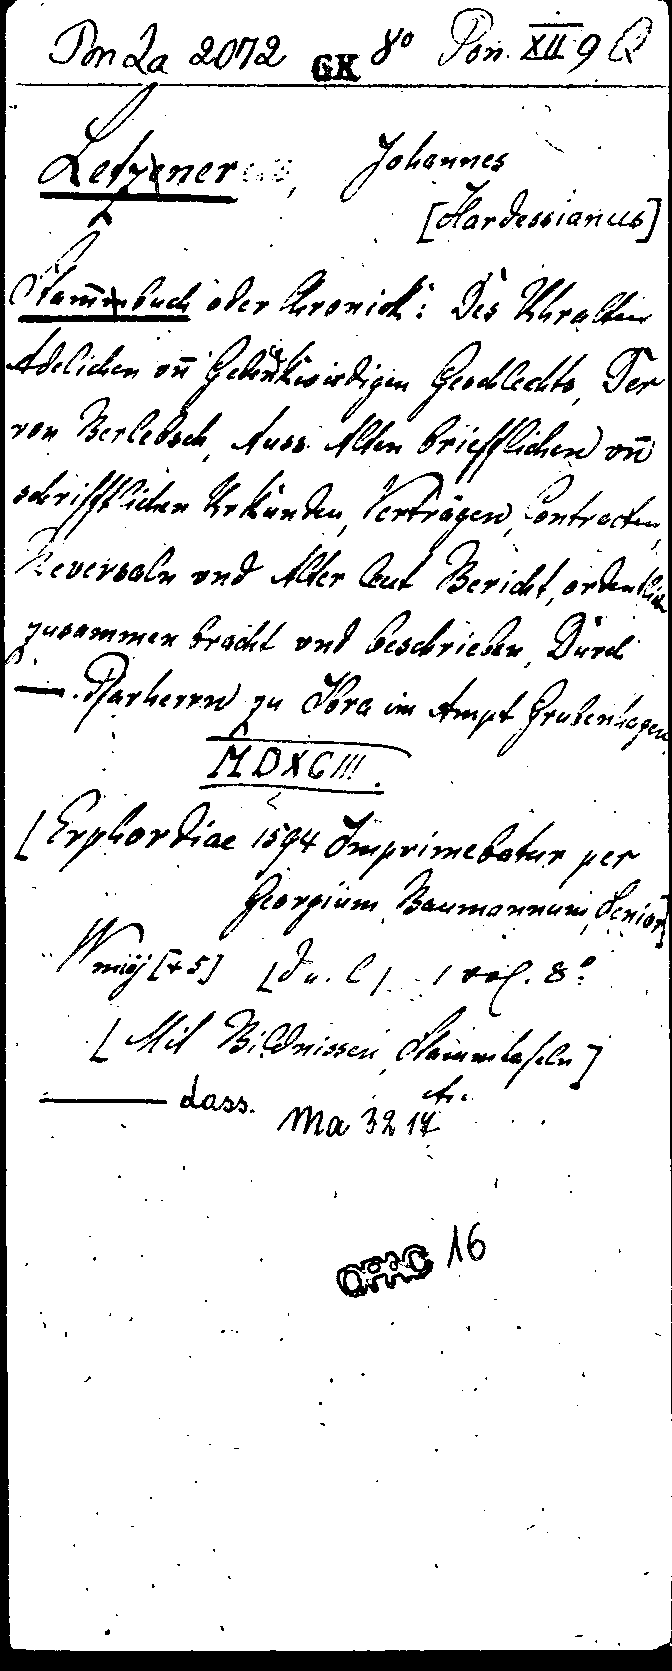 Pon Za 2072 GK 8° Pon. XII 9 Q
Letzener, Johannes
[Hardessianus]
Stam̄enbuch oder Chronick: Des Uhralten
Adelichen vn̄ Gedenkwirdigen Geschlechts, Der
von Berlebsch, Auss Alten briefflichen vn̄
schrifftlichen Urkunden, Verträgen, Contracten,
Reversaln vnd Alter leut Bericht, ordentlich
zusammen bracht vnd beschrieben, Durch
—. Pfarherrn zu Ibra im Ampt Grubenhagen
MDXCIII.
[Erphordiae 1594 Imprimebatur per
Georgium Baumannum, Senior]
[+5] 1 vol. 8°
[Mit Bildnissen, Stammtafeln]
— dass.
Ma 3217
16